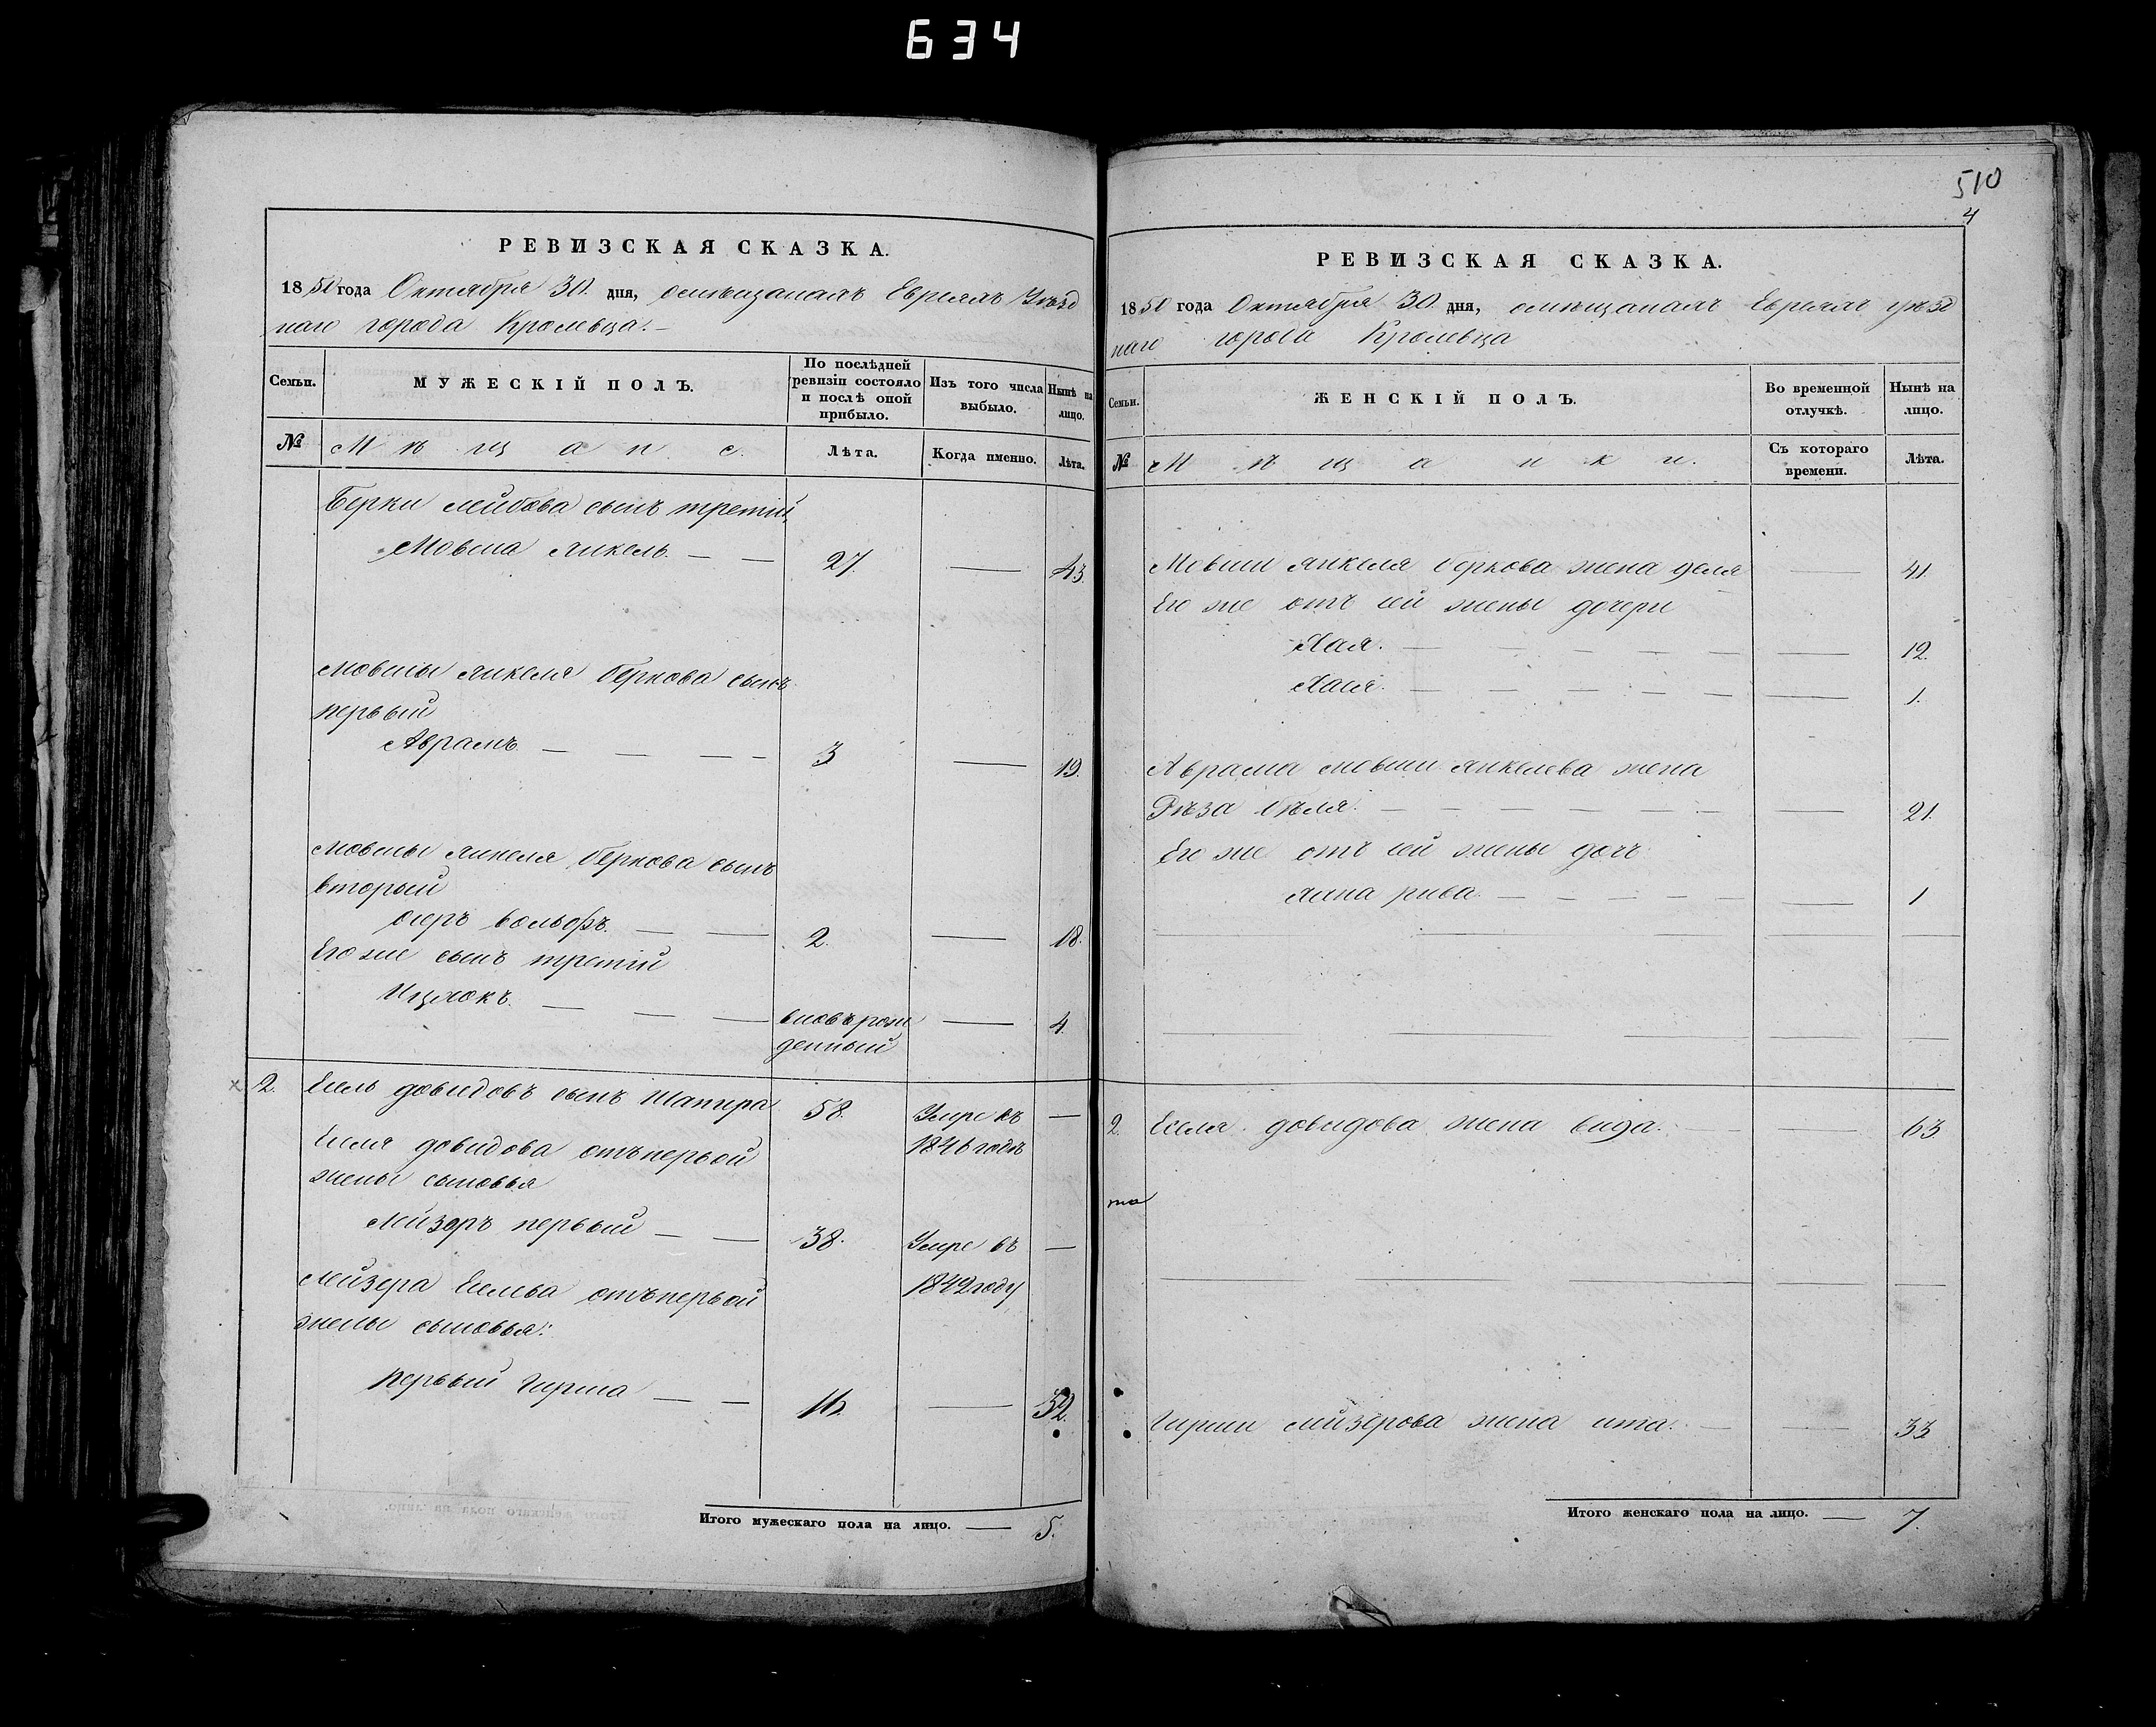 634
РЕВИЗСКАЯ СКАЗКА.
1850 года Октября 30. дня, о мѣщанахъ Евреяхъ Уѣзд
наго города Кролевца.
Семьи.
МУЖЕСКІЙ ПОЛЪ.
По послѣдней ревизіи состояло и послѣ оной прибыло.
Изъ того числа выбыло.
Нынѣ на лицо.
№
Мѣщане.
Лѣта.
Когда именно.
Лѣта.
Берки Лейбова сынъ третій,
Мовша Янкель. 27. 43.
Мовшы Янкеля Беркова сынъ
первый
Аврамъ 3 19.
Мовшы Янкеля Беркова сынъ
вторый
Вольфъ. 2. 18.
Его же сынъ третій
Ицхокъ. вновь рож 4.
денный
2. Есель Довидовъ сынъ Шапира 58. Умре въ
1846 годѣ
Еселя Довидова отъ первой
жены сыновья
Лейзеръ первый 38. Умре въ
1849 году
Лейзера Еселева отъ первой
жены сыновья:
первый Гирша 16. 32.
Итого мужескаго пола на лицо. 5.
510
4
РЕВИЗСКАЯ СКАЗКА.
1850 года Октября 30. дня, о мѣщанахъ Евреяхъ уѣзд
наго города Кролевца
Семьи.
ЖЕНСКІЙ ПОЛЪ.
Во временной отлучкѣ.
Нынѣ на лицо.
№
Мѣщанки.
Съ котораго времени.
Лѣта.
Мовши Янкеля Беркова жена 41.
Его же отъ сей жены дочери
Хая. 12.
Хася. 1.
Аврама Мовши Янкелева жена
Рѣза Бѣля. 21.
Его же отъ сей жены дочь
Рива. 1
2. Еселя Довидова жена Вида. 63.
Гирши Лейзерова жена Ита. 33
Итого женскаго пола на лицо. 7.